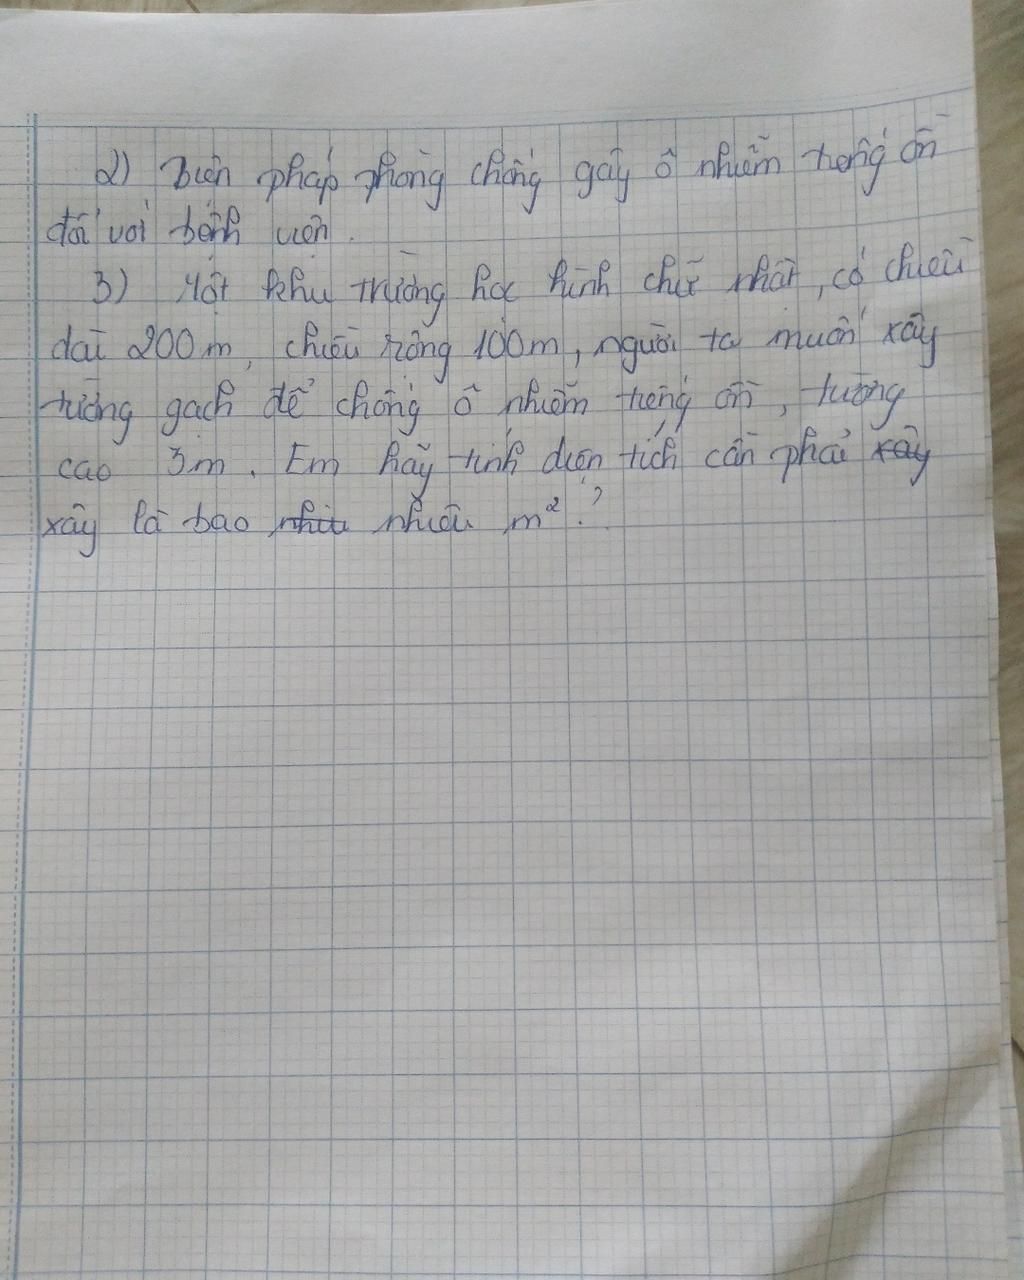 2) Biện pháp phòng chống gây ô nhiễm tiếng ồn
đối với bệnh viện.
3) Một khu trường học hình chữ nhật, có chiều
dài 200m, chiều rộng 100m, người ta muốn xây
tường gạch để chống ô nhiễm tiếng ồn, tường
cao 3m. Em hãy tính diện tích cần phải xây
xây là bao nhiêu m²?